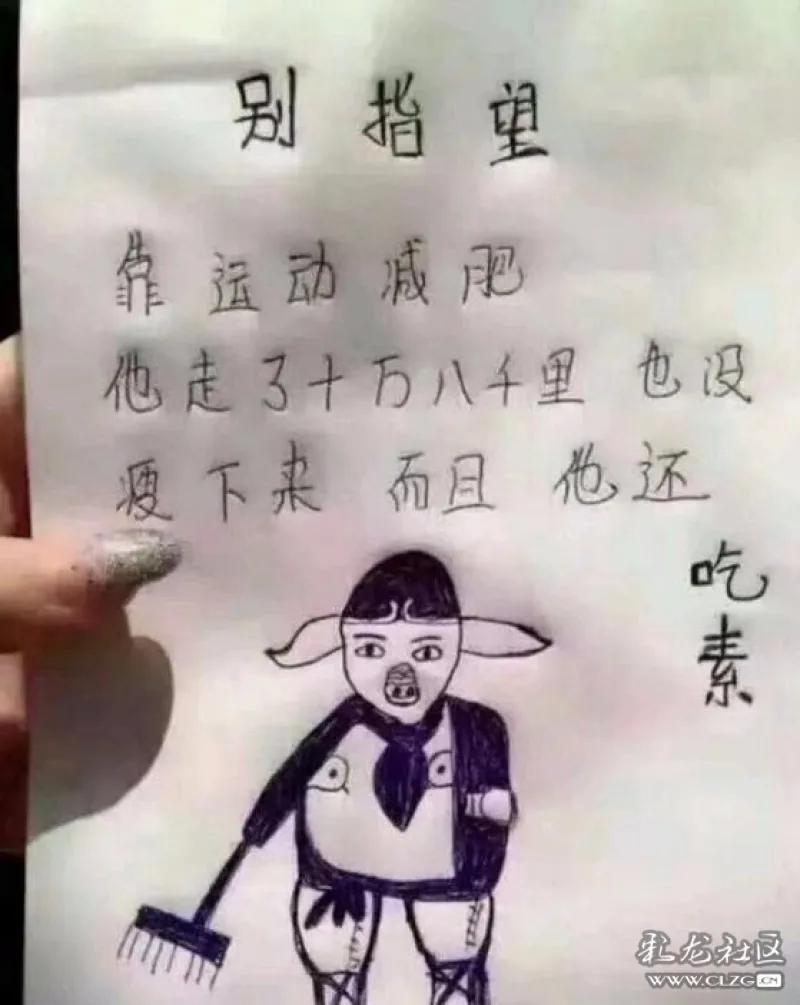 别指望
靠运动减肥
他走了十万八千里 也没
瘦下来 而且 他还
吃素
彩龙社区
www.CLZG.CN